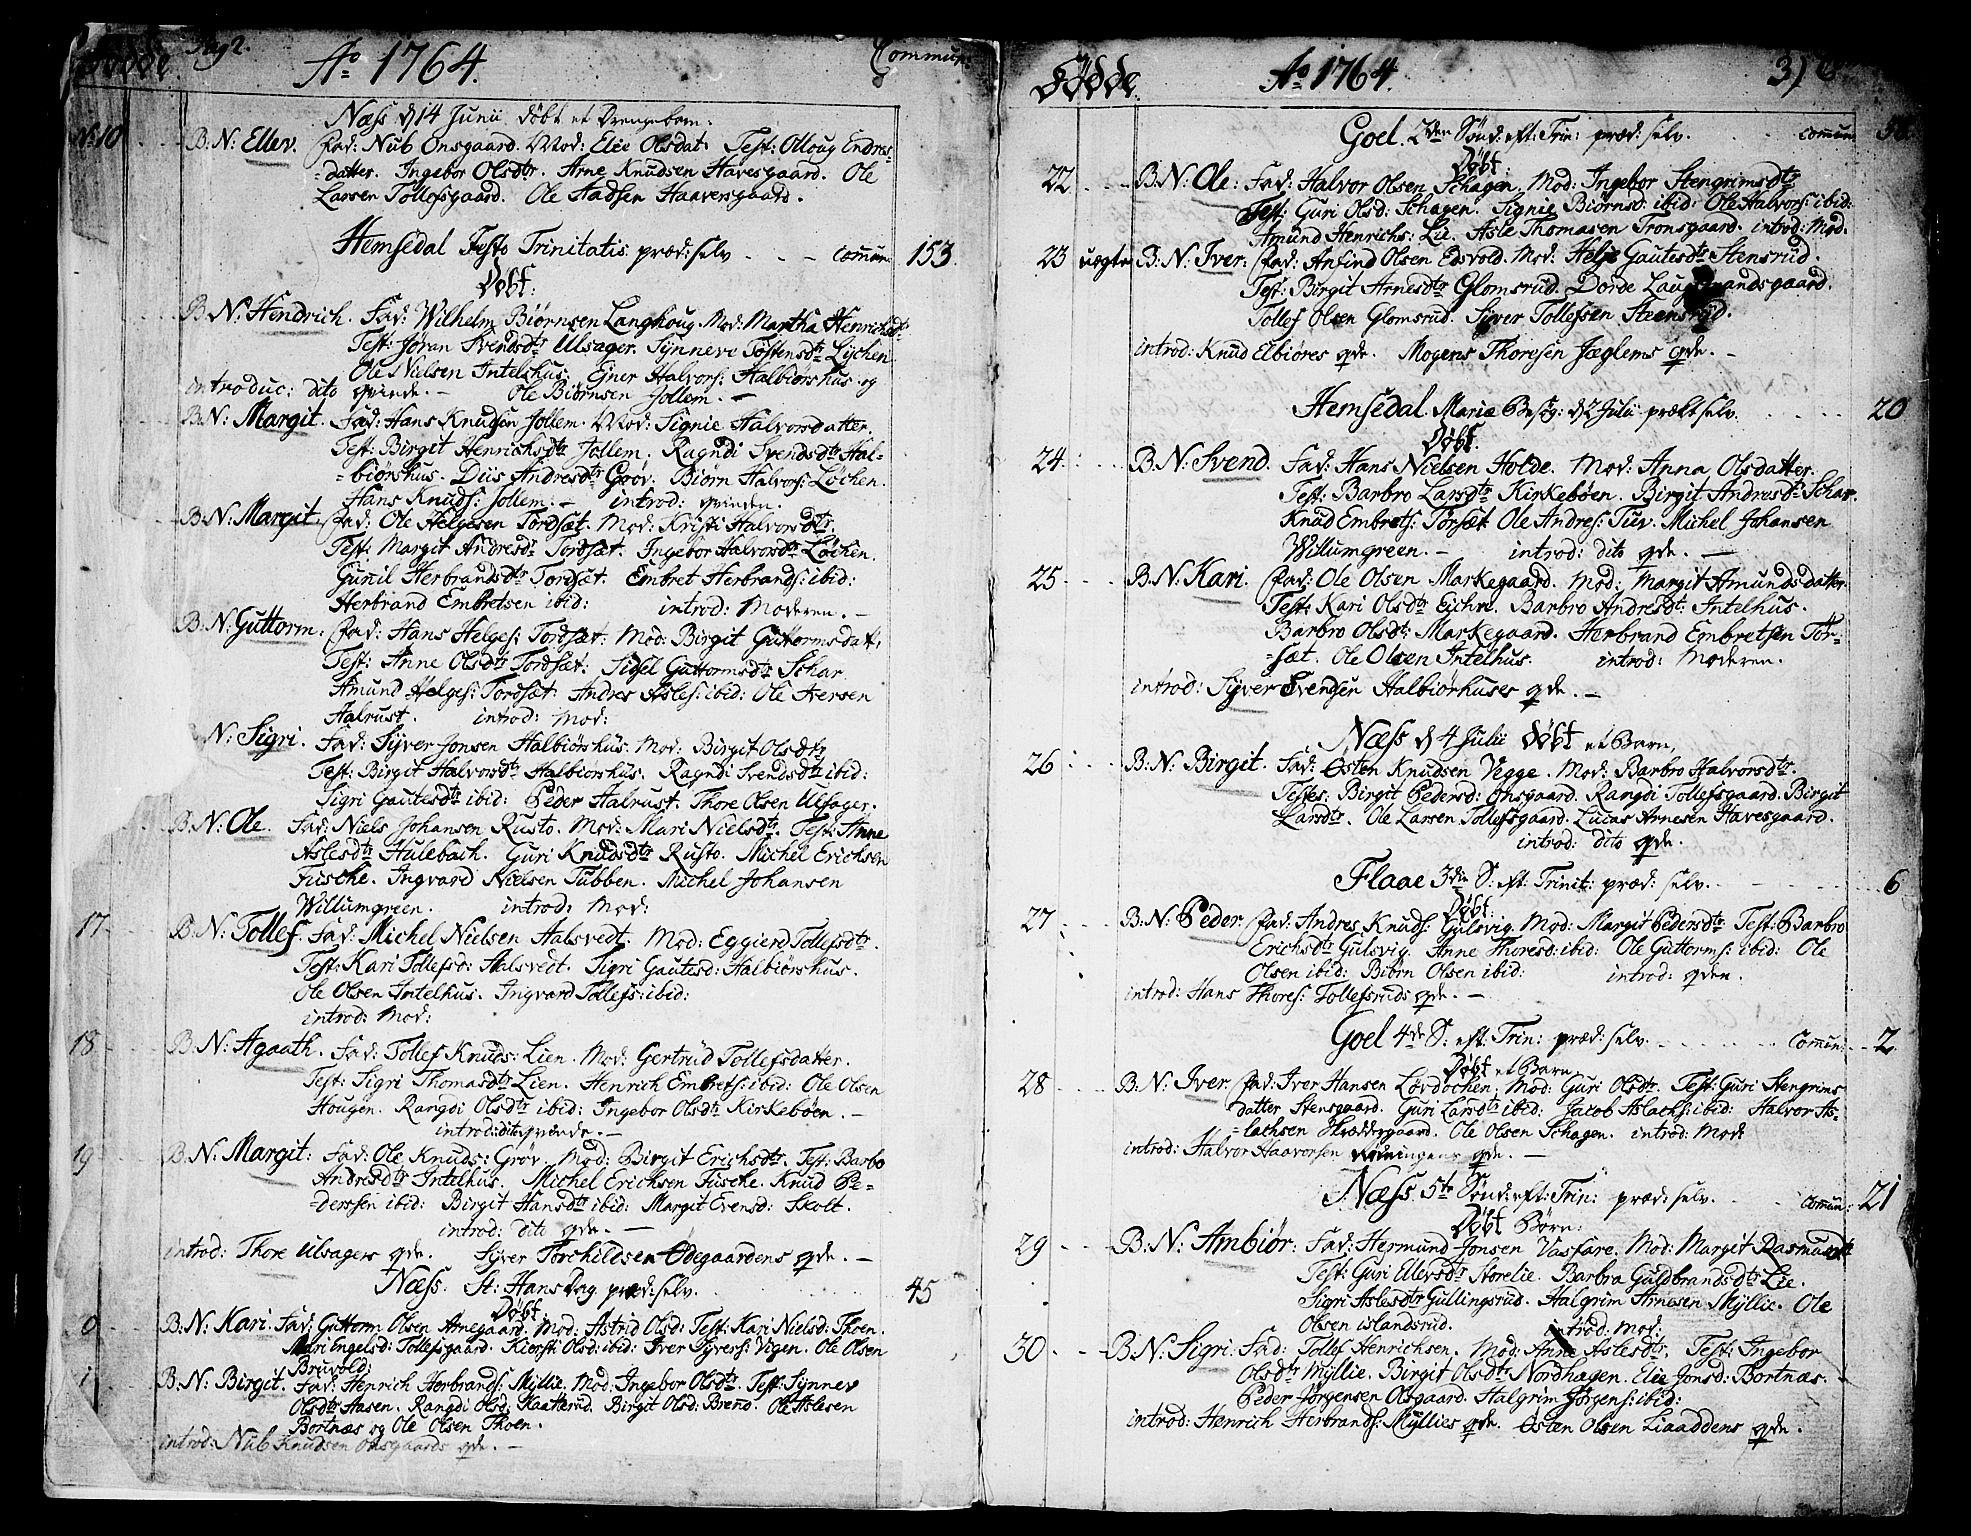 Fødde. Pag 2. Ao 1764. Commun:
Næss d 14 Junii døbt et Drengebarn.
No 10 B.N: Ellev. Fad: Nub Onsgaard. Mod: Elie Olsdatr Test: Olloug Endres-
=datter. Ingebor Olsdtr. Arne Knudsen Havesgaard. Ole
Larsen Tollefsgaard. Ole Aadsen Haaversgaard.
Hemsedal Festo Trinitatis præd: selv - - - comun: 153.
Døbt:
B.N: Hendrich. Fad: Wilhelm Biørnsen Langhoug. Mod: Martha Henrichsdtr
Test: Joran Svendsdtr Ulsager. Synneve Tostensdtr Løchen
Ole Nielsen Intelhus. Ejner Halvors: Halbiørshus og
introduc: dito qvinde. - Ole Biørnsen Jollem. -
B.N: Margit. Fad: Hans Knudsen Jollem. Mod: Signie Halvorsdatter.
Test: Birgit Henrichsdtr Jollem. Ragndi Svendsdtr Hal=
=biørshus. Diis Andresdtr Grøv. Biørn Halvors: Løchen.
Hans Knuds: Jollem. - introd: qvinden.
B.N: Margit. Fad: Ole Helgesen Tordsæt. Mod: Kristi Halvorsdtr.
Test: Margit Andresdtr Tordsæt. Ingebor Halvorsdtr Løchen.
Gunil Herbrandsdtr Tordsæt. Embret Herbrands: ibid:
Herbrand Embretsen ibid: introd: Moderen. -
B.N: Guttorm. Fad: Hans Helges: Tordsæt. Mod: Birgit Guttormsdatt:
Test: Anne Olsdtr Tordsæt. Sidsel Guttormsdtr Schar
Amund Helges: Tordsæt. Andres Asles: ibid: Ole Iversen
Aalrust. introd: Mod:
N: Sigri. Fad: Syver Jonsen Halbiørshus. Mod: Birgit Olsdtr
Test: Birgit Halvorsdtr Halbiørshus. Ragndi Svendsdtr ibid:
Sigri Gautesdtr ibid: Peder Aalrust. Thore Olsen Ulsager.
B.N: Ole. Fad: Niels Johansen Rusto. Mod: Mari Nielsdtr. Test: Anne
Aslesdtr Hulebach. Guri Knudsdtr Rusto. Michel Erichsen
Fusche. Ingvard Nielsen Tubben. Michel Johansen
Willumgreen. introd: Mod:
17 B.N: Tollef. Fad: Michel Nielsen Aalsvedt. Mod: Eggierd Tollefsdtr.
Test: Kari Tollefsd: Aalsvedt. Sigri Gautesd: Halbiørshus.
Ole Olsen Intelhus. Ingvard Tollefs: ibid:
introd: Mod:
18 B.N: Agaath. Fad: Tollef Knuds: Lien. Mod: Gertrud Tollefsdatter.
Test: Sigri Thomasdtr Lien. Henrich Embrets: ibid: Ole Olsen
Hougen. Rangdi Olsdtr ibid: Ingebor Olsdtr Kirkebøen. -
introd: dito qvinde. -
19 B.N: Margit: Fad: Ole Knuds: Grøv. Mod: Birgit Erichsdtr. Test: Barbo
Andresdtr Intelhus. Michel Erichsen Fusche. Knud Pe=
=derssen ibid: Birgit Hansdtr ibid: Margit Evensd: Skolt.
introd: dito qde. -
introd: Thore Ulsagers qde. Syver Torchildsen Ødegaardens qde. -
Næss. St: Hans Dag præd: selv. 45
Døbt.
0 B.N: Kari. Fad: Guttorm Olsen Arnegaard. Mod: Astrid Olsd: Test: Kari Nielsd: Thoen.
Mari Engelsd: Tollefsgaard. Kiersti Olsd: ibid: Iver Syvers: Vigen. Ole Olsen
Bruvold:
1 B.N: Birgit. Fad: Henrich Herbrands: Myllie. Mod: Ingebor Olsdtr. Test: Synnev
Olsdtr Aasen. Rangdi Olsd: Kaatterud. Birgit Olsd: Breno. Ole Aslesen
Bortnæs og Ole Olsen Thoen.
introd: Nub Knudsen Onsgaards qde. -
Fødde. Ao 1764. 3)
Goel. 2den Sønd: eft: Trin: præd: selv. comun:
Døbt:
22 B.N: Ole: Fad: Halvor Olsen Schagen. Mod: Ingebor Stengrimsdtr
Test: Guri Olsd: Schagen. Signie Biørnsd: ibid: Ole Halvors: ibid:
Amund Henrichs: Lie. Asle Thomasen Tronsgaard. introd: Mod.
23 uægte B.N: Iver. Fad: Anfind Olsen Edsvold. Mod: Helje Gautesdtr Stensrud.
Test: Birgit Arnesdtr Glomsrud. Dorde mandsgaard.
Tollef Olsen Glomsrud. Syver Tollefsen Steensrud.
introd: Knud Elbiøres qde. Mogens Thoresen Jæglems qde. -
Hemsedal. Mariæ Besøg: d 2 Julii prækt selv. 20
Døbt.
24. B.N: Svend. Fad: Hans Nielsen Holde. Mod: Anna Olsdatter.
Test: Barbro Larsdtr Kirkebøen. Birgit Andresdtr Schar.
Knud Embrets: Torsæt Ole Andres: Tuv. Michel Johansen
Willumgreen. - introd: dito qde. -
25 B.N: Kari. Fad: Ole Olsen Markegaard. Mod: Margit Amundsdatter.
Test: Kari Olsdtr Eichre. Barbro Andresdt: Intelhus.
Barbro Olsdt: Markegaard. Herbrand Embretsen Tor=
=sæt. Ole Olsen Intelhus. introd: Moderen.
introd: Syver Svendsen Halbiørhuses qde. -
Næss d 4 Julii Døbt et Barn,
26 B.N: Birgit. Fad: Østen Knudsen Vegge. Mod: Barbro Halvorsdtr.
Testes: Birgit Pedersd: Onsgaard. Rangdi Tollefsgaard. Birgit
Larsdtr. Ole Larsen Tollefsgaard. Lucas Arnesen Havesgaard.
introd: dito qde.
Flaae 3die S: eft: Trinit: præd: selv. 6
Døbt:
27 B.N: Peder. Fad: Andres Knuds: Gulsvig. Mod: Margit Pedersdtr Test: Barbro
Erichsdtr Gulsvig. Anne Thoresd: ibid: Ole Guttorms: ibid: Ole
Olsen ibid: Biørn Olsen ibid: introd: qden.
introd: Hans Thores: Tollefsruds qde. -
Goel 4de S: eft: Trin: præd: selv. comun: 2
Døbt et Barn
28 B.N: Iver. Fad: Iver Hansen Lordochen. Mod: Guri Olsdtr. Test: Guri Stengrims
datter Stensgaard. Guri Larsdtr ibid: Jacob Aslachs: ibid: Halvor As=
=lachsen Skræddergaard. Ole Olsen Schagen. introd: Mod:
introd: Halvor Haavorsen qde. -
Næss 5te Sønd: eft: Trin: præd: selv. comun: 21
Døbt Børn:
29 B.N: Ambiør: Fad: Hermund Jonsen Vasfare. Mod: Margit Rasmusdtr
Test: Guri Ellevsdtr Storelie. Barbra Guldbrandsdtr Lie.
Sigri Aslesdtr Gullingsrud. Halgrim Arnesen Myllie. Ole
Olsen islandsrud. introd: Mod:
30 B.N: Sigri. Fad: Tollef Henrichsen. Mod: Anne Aslesdtr. Test: Ingebor
Olsdtr Myllie. Birgit Olsdtr Nordhagen. Elie Jonsd: Bortnæs.
Peder Jørgensen Olsgaard. Halgrim Jørgens: ibid:
introd: Henrich Herbrands: Myllies qde. Østen Olsen Liaaddens qde.